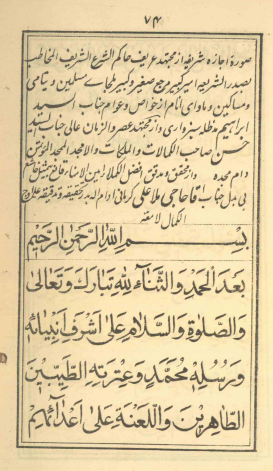 ۷۴
صورة اجازه شریفه از مجتهد عریف حاکم الشرع الشریف المخاطب
بصدر الشریعه امیر کبیر مرجع صغیر و کبیر ملجاء مسلمین و یتامی
و مساکین و ماوای انام از خواص و عوام جناب السید
ابراهیم مدظله سبزواری و از مجتهد عصر و الزمان عالی جناب السید
حسن صاحب الکمالات و الملکات و الامجد المجد المؤتمن
دام مجده و از محقق و مدقق افضل الکملا زین الابرار
بی بدل جناب حاجی ملا علی کرمانی ادام الله
الکمال لامعة
بِسْمِ اللهِ الرَّحْمنِ الرَّحِيْمِ
بَعْدَ الْحَمْدِ وَالثَّنَآءِ لِلّهِ تَبَارَكَ وَتَعَالىٰ
وَالصَّلوٰةِ وَالسَّلَامِ عَلىٰ اَشْرَفِ اَنْبِيَائِهِ
وَرَسُلِهِ مُحَمَّدٍ وَعِتْرَتِهِ الطَّيِّبِيْنَ
الطَّاهِرِيْنَ وَاللَّعْنَةِ عَلىٰ اَعْدَآئِهِمْ